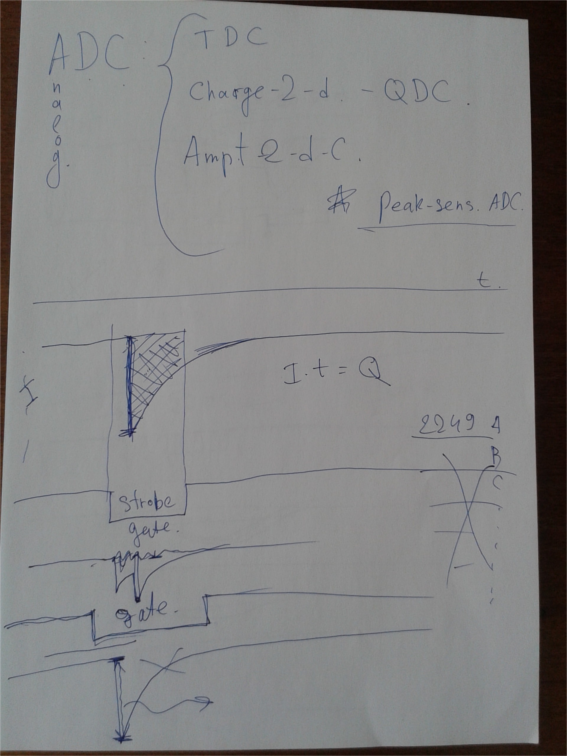 ADC: TDC
nalog.
Charge-2-d. - QDC.
Ampt 2-d-C.
Peak-sens. ADC.
t.
I
I·t = Q
2249 A
B
C
strobe
gate.
gate.